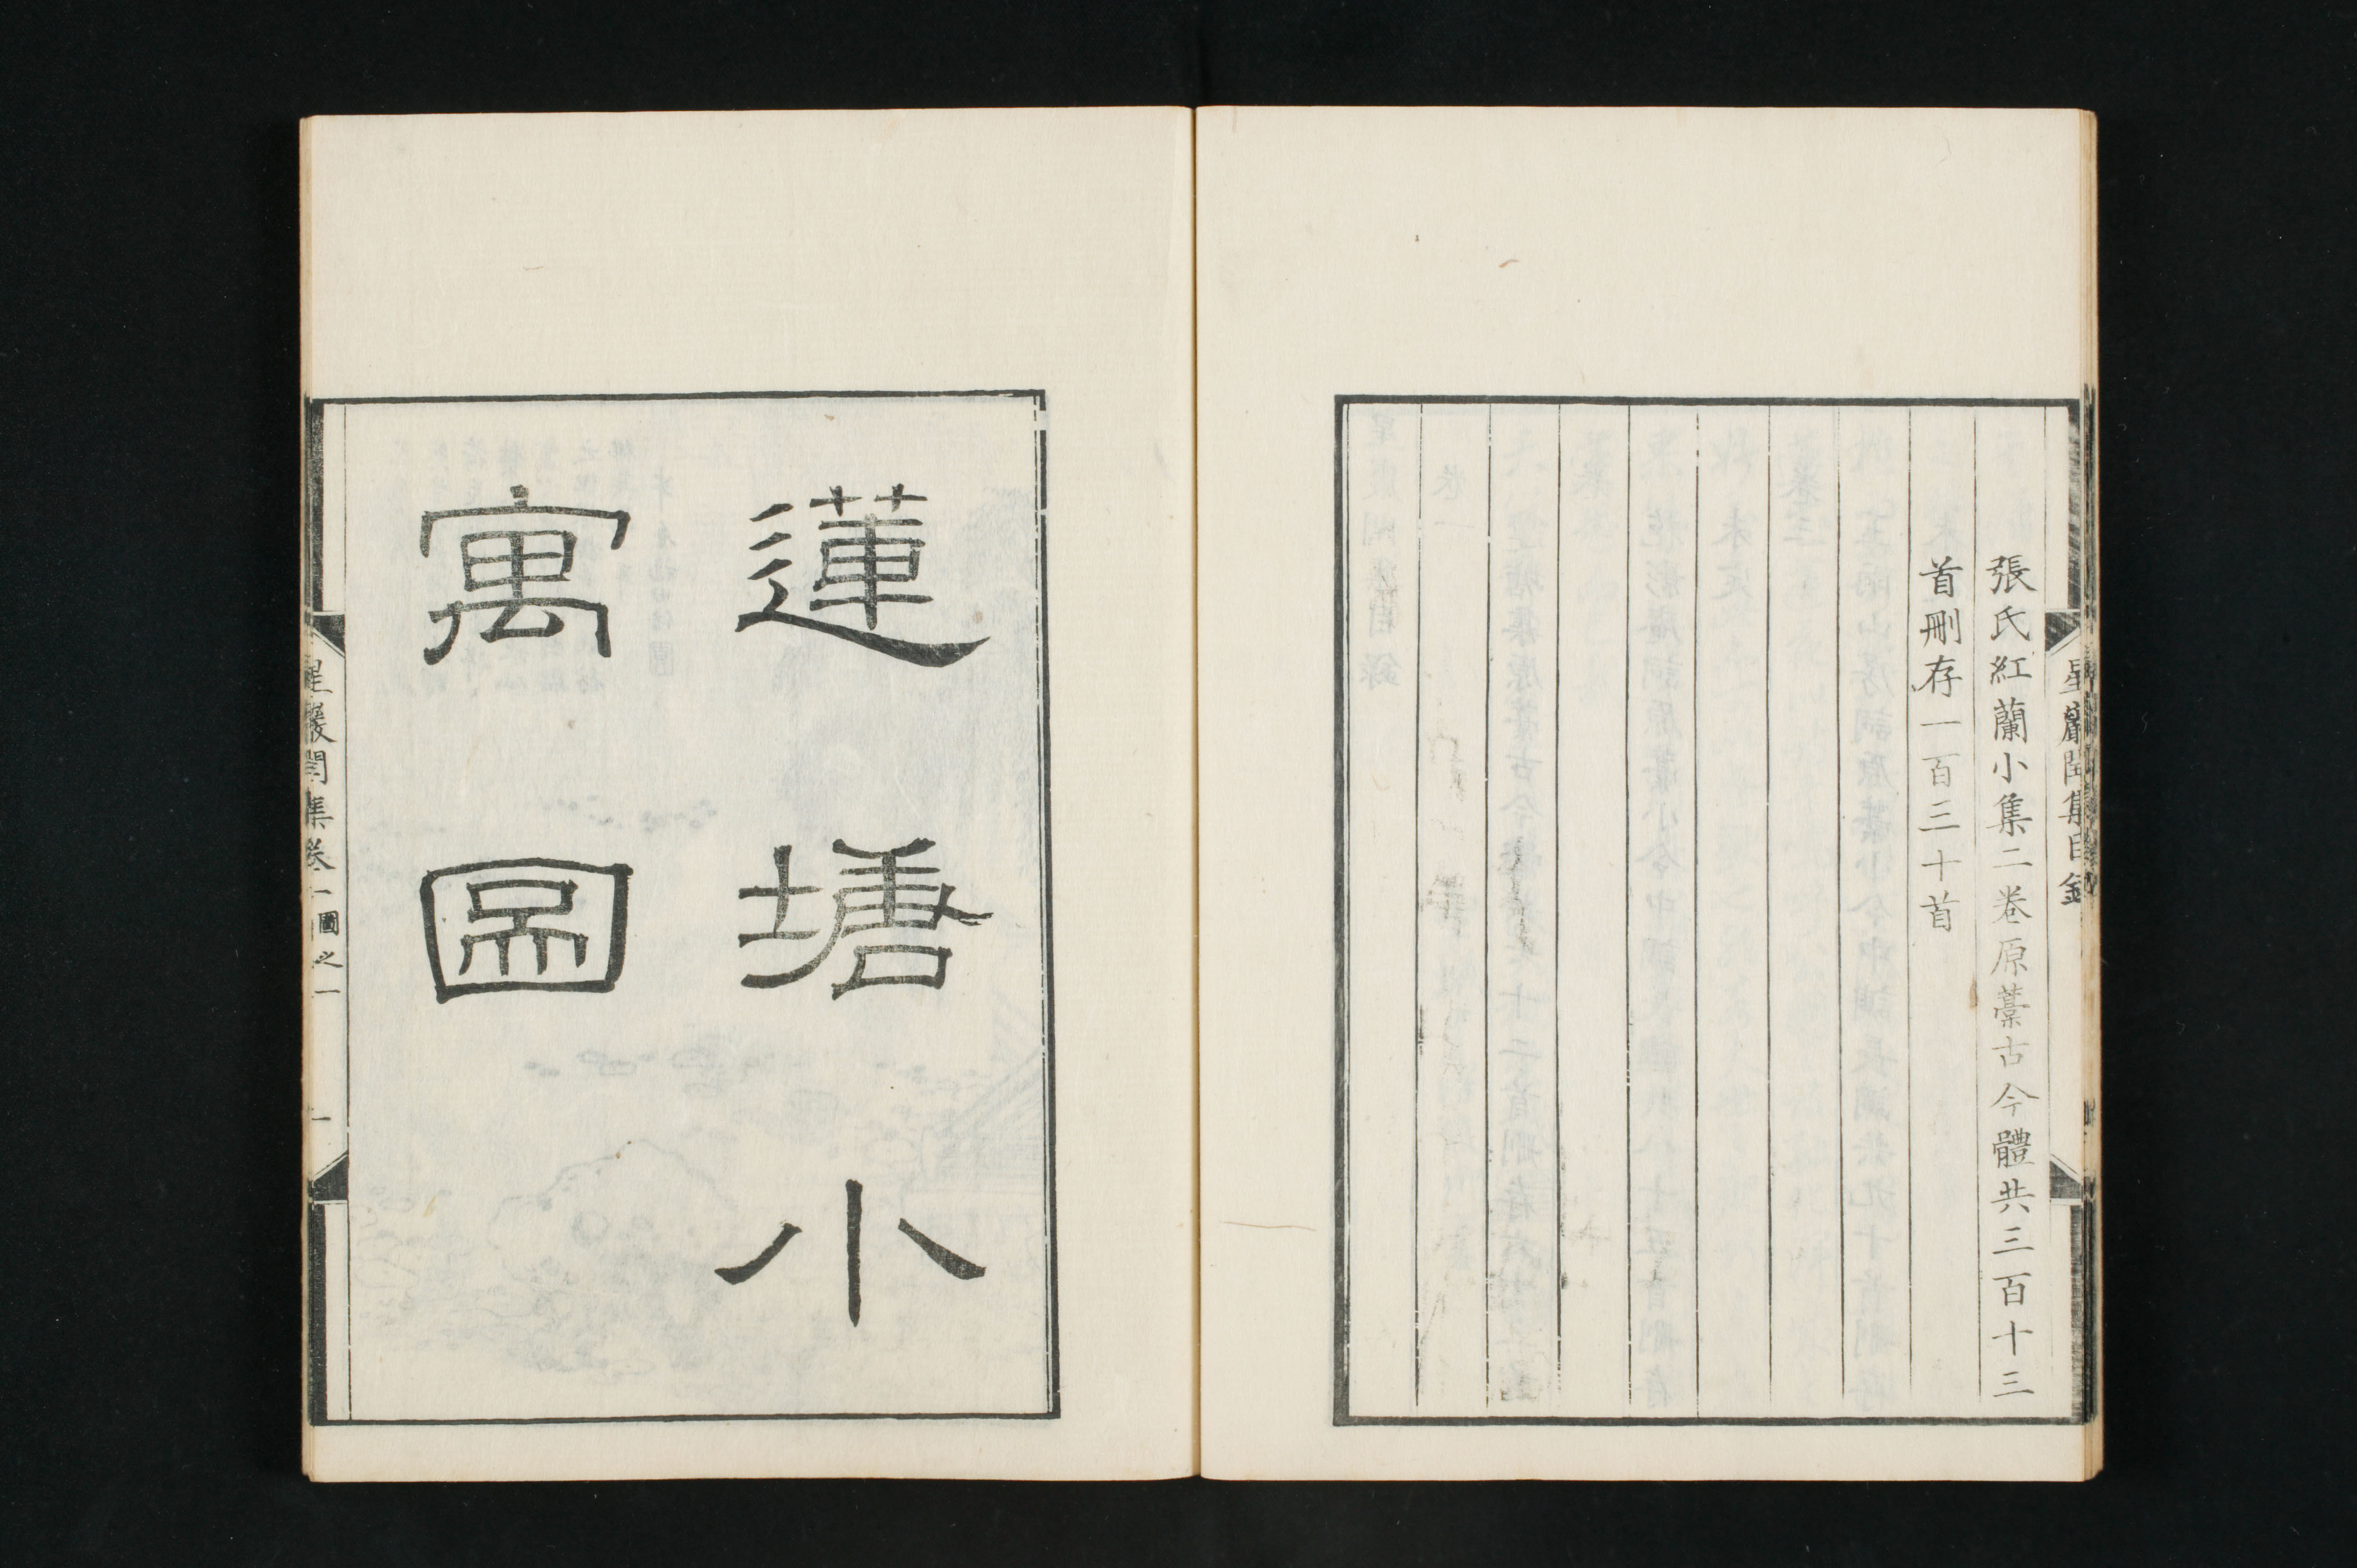 張氏紅蘭小集二卷原藁古今體共三百十三
首刪存一百三十首
星巖閏集目錄
蓮塘小
寓圖
星巖閏集卷一圖之一
一